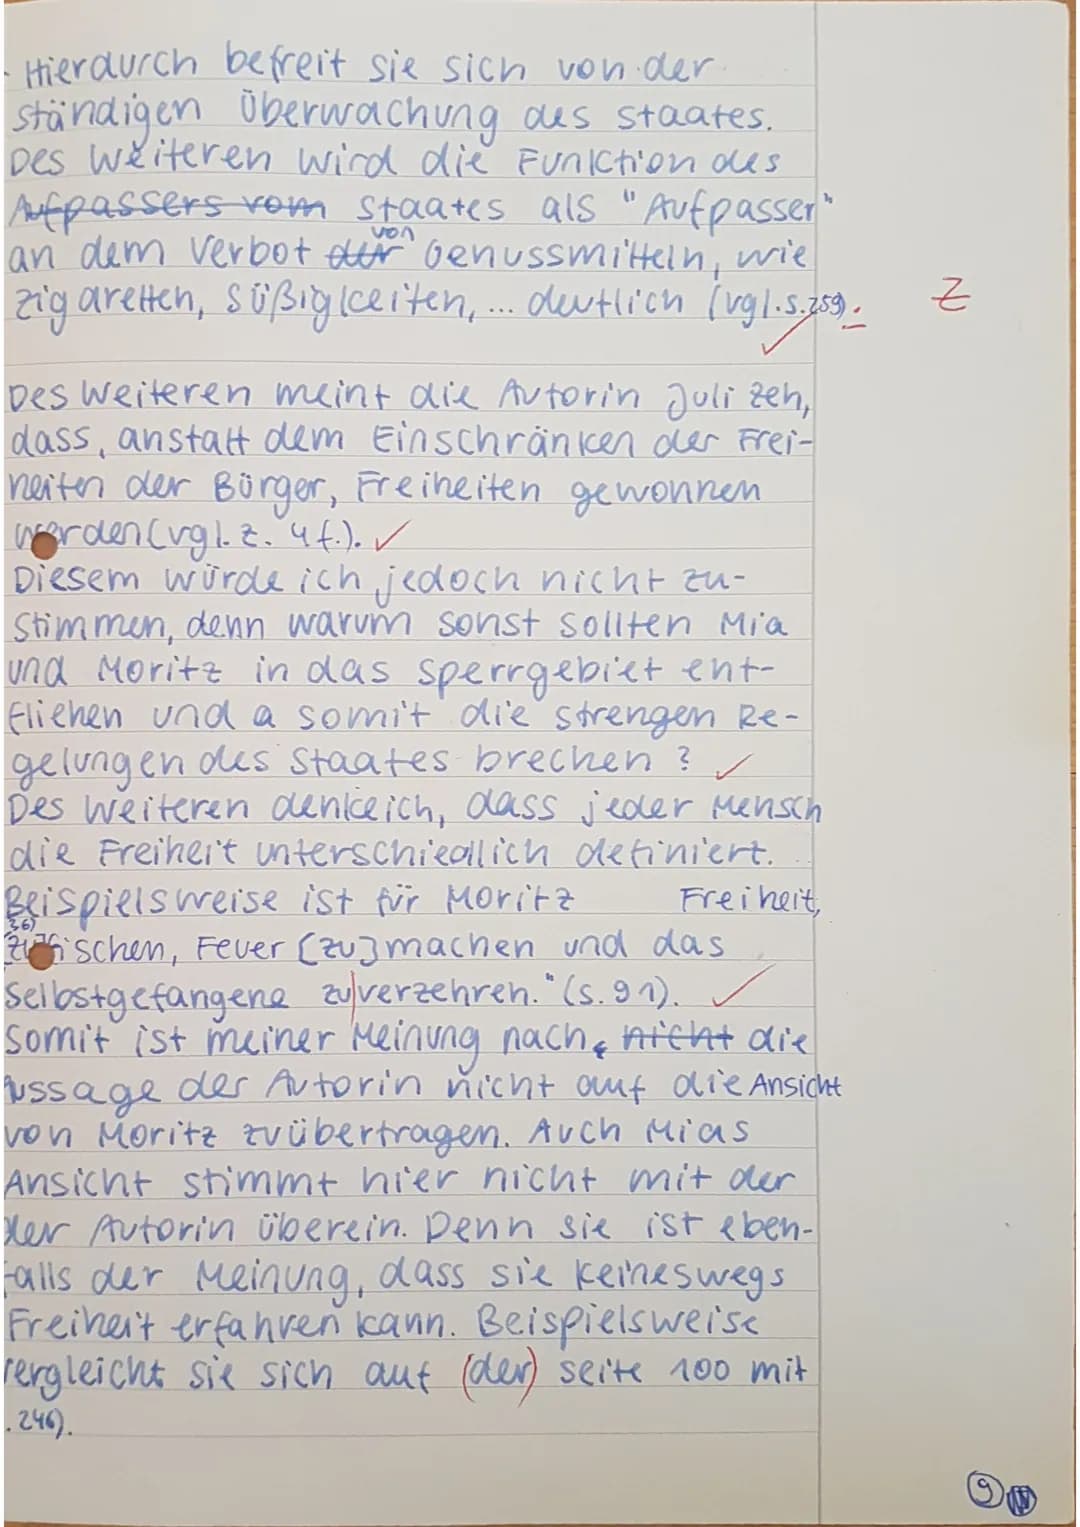 Hierdurch befreit sie sich von der
ständigen Überwachung des Staates.
Des Weiteren wird die Funktion des
Aufpassers vom Staates als "Aufpasser"
an dem Verbot der von Genussmitteln, wie
Zigaretten, Süßigkeiten, ... deutlich (vgl. S. 259). Z
Des Weiteren meint die Autorin Juli Zeh,
dass, anstatt dem Einschränken der Frei-
heiten der Bürger, Freiheiten gewonnen
werden (vgl. Z. 4 f.).
Diesem würde ich jedoch nicht zu-
stimmen, denn warum sonst sollten Mia
und Moritz in das Sperrgebiet ent-
fliehen und a somit die strengen Re-
gelungen des Staates brechen?
Des Weiteren denke ich, dass jeder Mensch
die Freiheit unterschiedlich definiert.
Beispielsweise ist für Moritz Freiheit,
36)
fischen, Feuer [zu] machen und das
Selbstgefangene zu verzehren." (S. 91).
Somit ist meiner Meinung nach, nicht die
Aussage der Autorin nicht auf die Ansicht
von Moritz zu übertragen. Auch Mias
Ansicht stimmt hier nicht mit der
der Autorin überein. Denn sie ist eben-
falls der Meinung, dass sie keineswegs
Freiheit erfahren kann. Beispielsweise
vergleicht sie sich auf (der) Seite 100 mit
. 246).
9